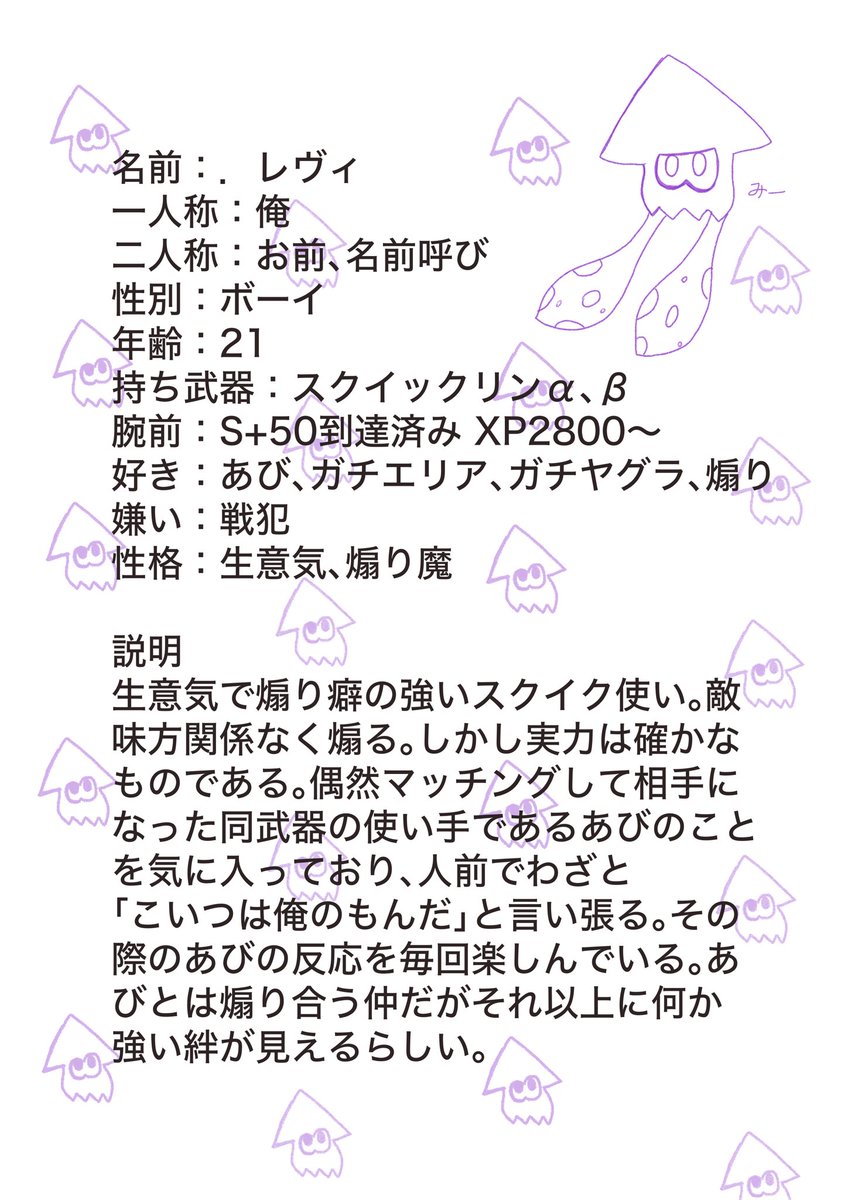 名前：．レヴィ
みー
一人称：俺
二人称：お前、名前呼び
性別：ボーイ
年齢：21
持ち武器：スクイックリンα、β
腕前：S+50到達済み XP2800〜
好き：あび、ガチエリア、ガチヤグラ、煽り
嫌い：戦犯
性格：生意気、煽り魔
説明
生意気で煽り癖の強いスクイク使い。敵
味方関係なく煽る。しかし実力は確かな
ものである。偶然マッチングして相手に
なった同武器の使い手であるあびのこと
を気に入っており、人前でわざと
「こいつは俺のもんだ」と言い張る。その
際のあびの反応を毎回楽しんでいる。あ
びとは煽り合う仲だがそれ以上に何か
強い絆が見えるらしい。